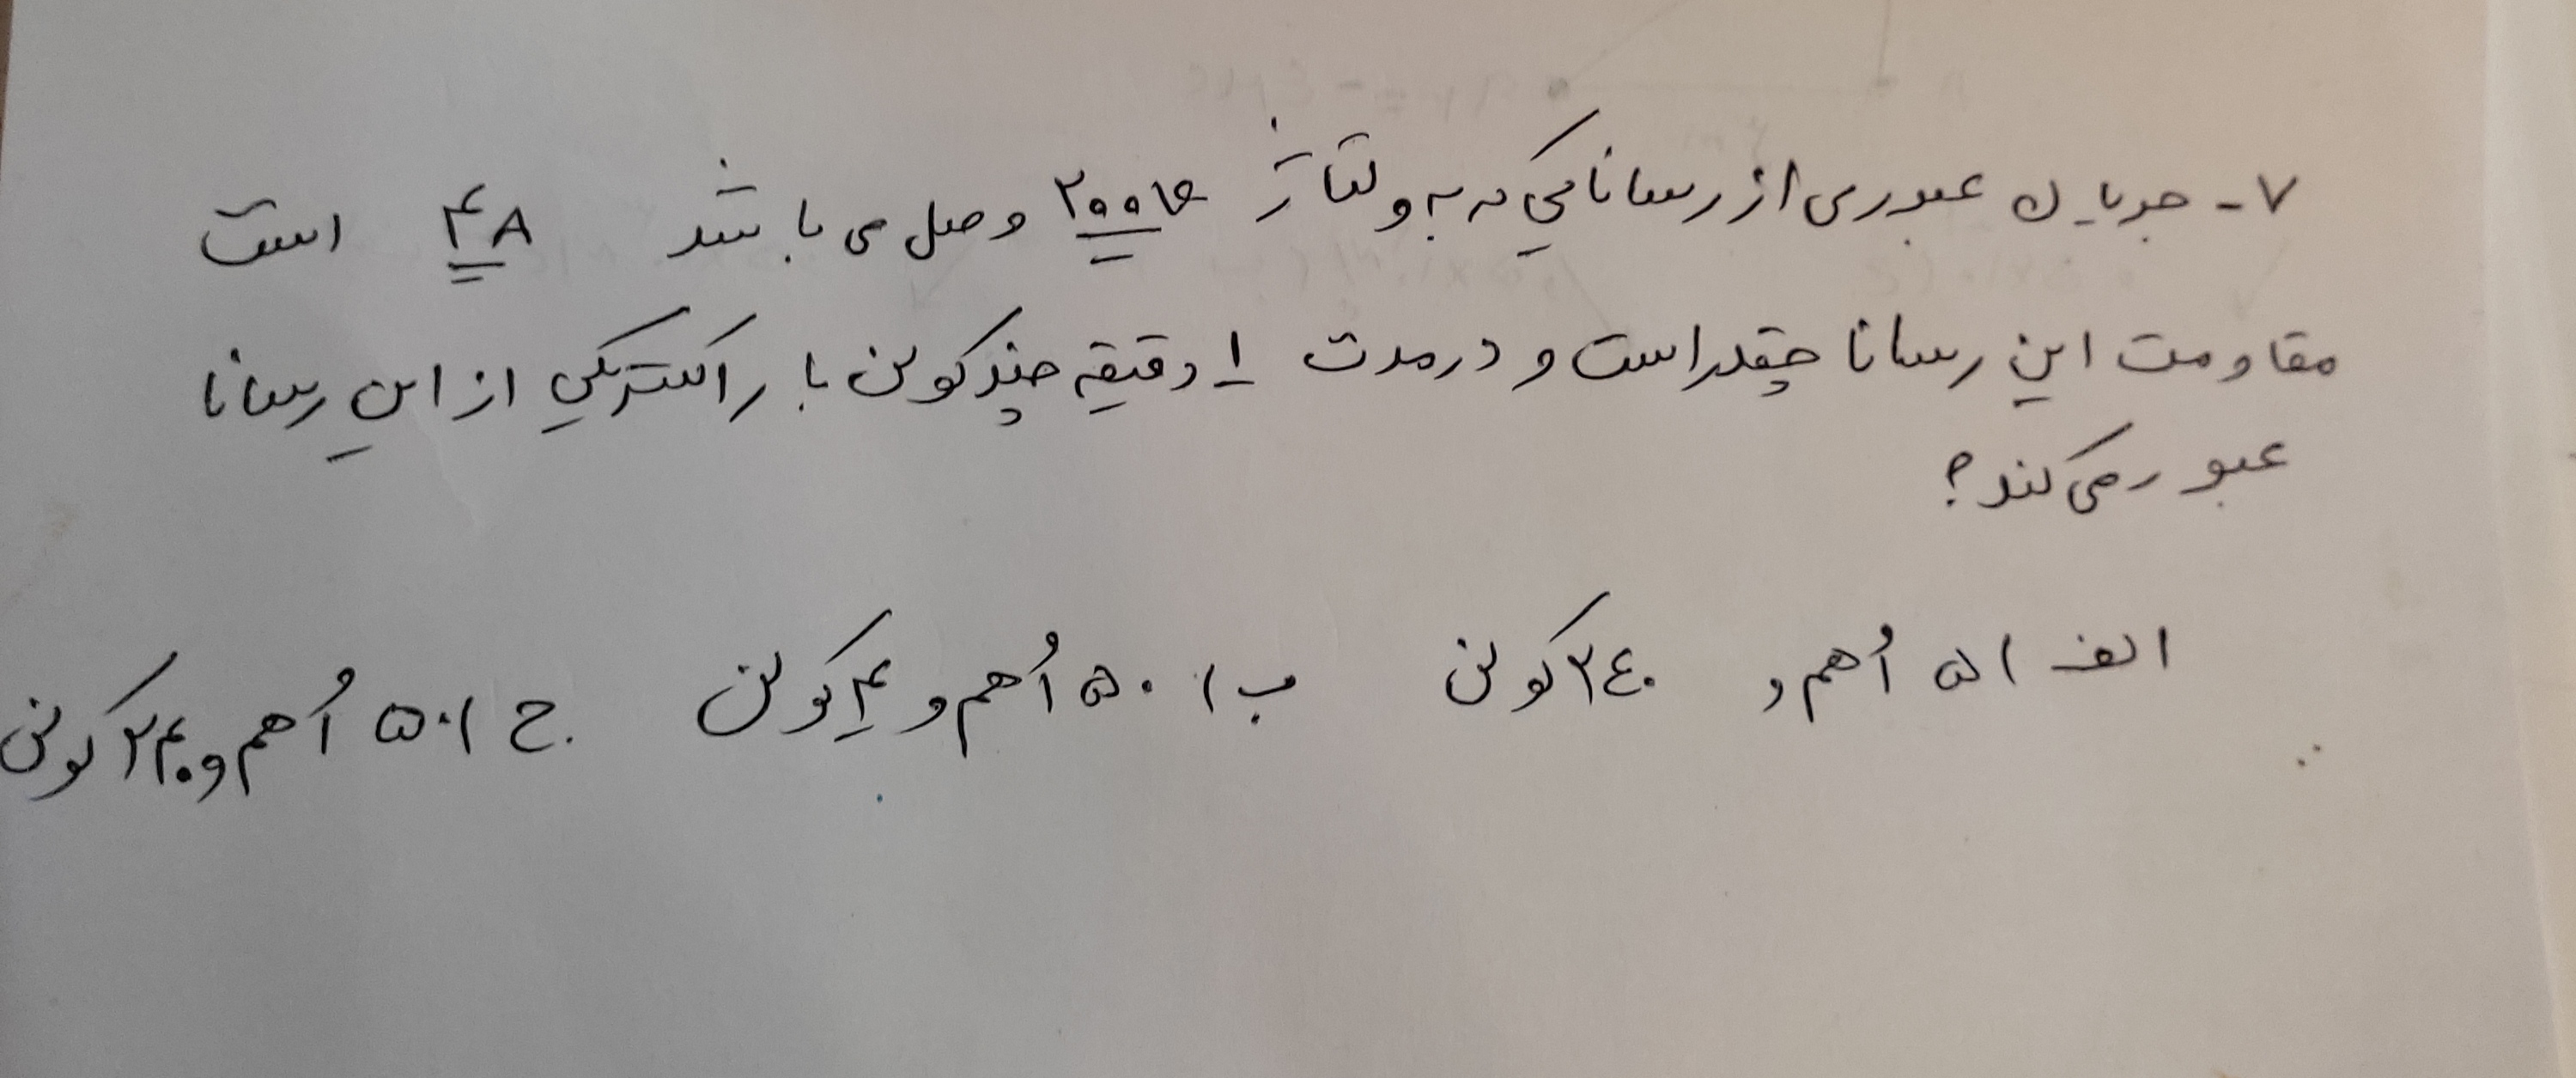 ۷- جریان عبوری از رسانایی که به ولتاژ ۲۰۰v وصل می باشد ۴A است
مقاومت این رسانا چقدر است و در مدت ۱ دقیقه چند کولن بار الکتریکی از این رسانا
عبور می کند؟
الف) ۵ اُهم و ۲۴۰ کولن ب) ۵۰ اُهم و ۴ کولن ج) ۵۰ اُهم و ۲۴۰ کولن